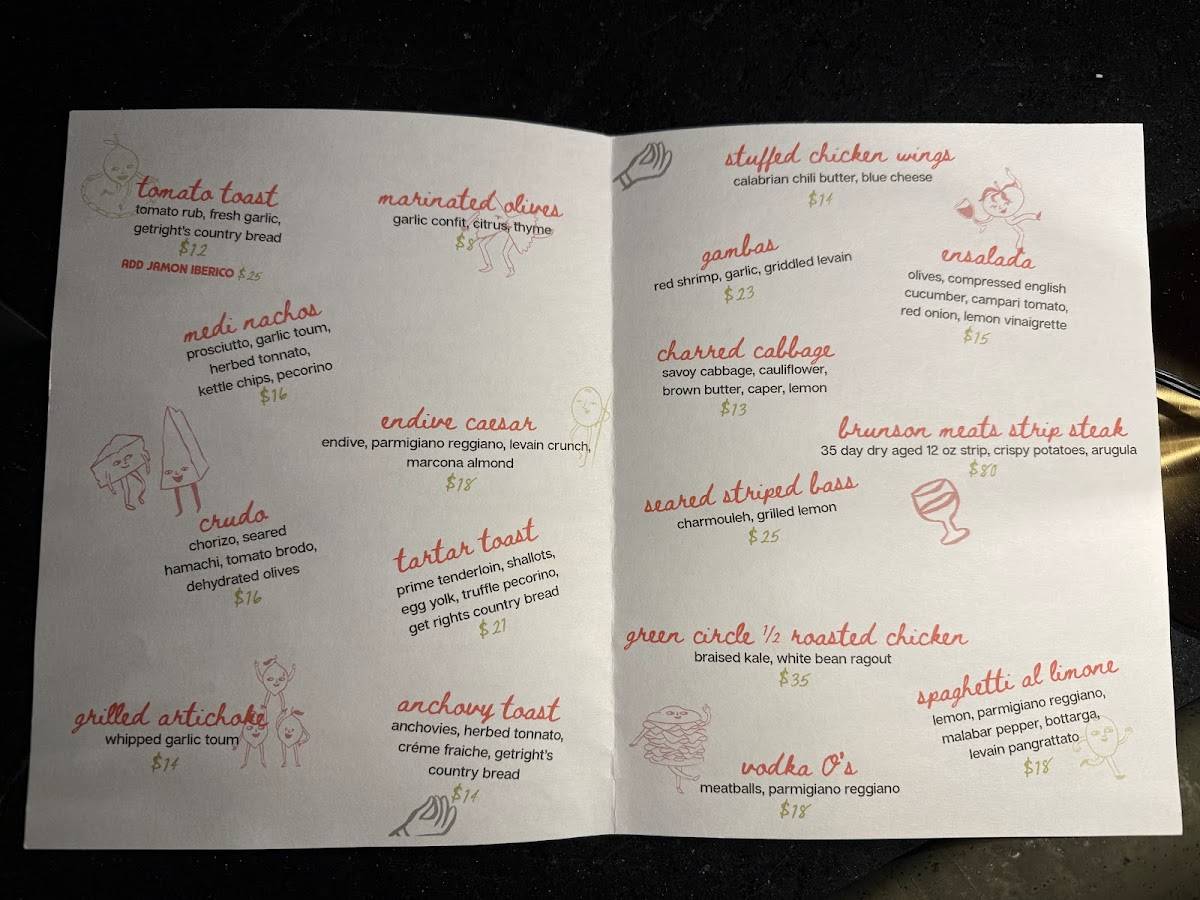 tomato toast
tomato rub, fresh garlic,
getright's country bread
$12
ADD JAMON IBERICO $25
marinated olives
garlic confit, citrus, thyme
$8
medi nachos
prosciutto, garlic toum,
herbed tonnato,
kettle chips, pecorino
$16
endive caesar
endive, parmigiano reggiano, levain crunch,
marcona almond
$18
crudo
chorizo, seared
hamachi, tomato brodo,
dehydrated olives
$16
tartar toast
prime tenderloin, shallots,
egg yolk, truffle pecorino,
get rights country bread
$21
grilled artichoke
whipped garlic toum
$14
anchovy toast
anchovies, herbed tonnato,
créme fraiche, getright's
country bread
$14
stuffed chicken wings
calabrian chili butter, blue cheese
$14
gambas
red shrimp, garlic, griddled levain
$23
ensalada
olives, compressed english
cucumber, campari tomato,
red onion, lemon vinaigrette
$15
charred cabbage
savoy cabbage, cauliflower,
brown butter, caper, lemon
$13
brunson meats strip steak
35 day dry aged 12 oz strip, crispy potatoes, arugula
$80
seared striped bass
charmouleh, grilled lemon
$25
green circle 1/2 roasted chicken
braised kale, white bean ragout
$35
spaghetti al limone
lemon, parmigiano reggiano,
malabar pepper, bottarga,
levain pangrattato
$18
vodka O's
meatballs, parmigiano reggiano
$18